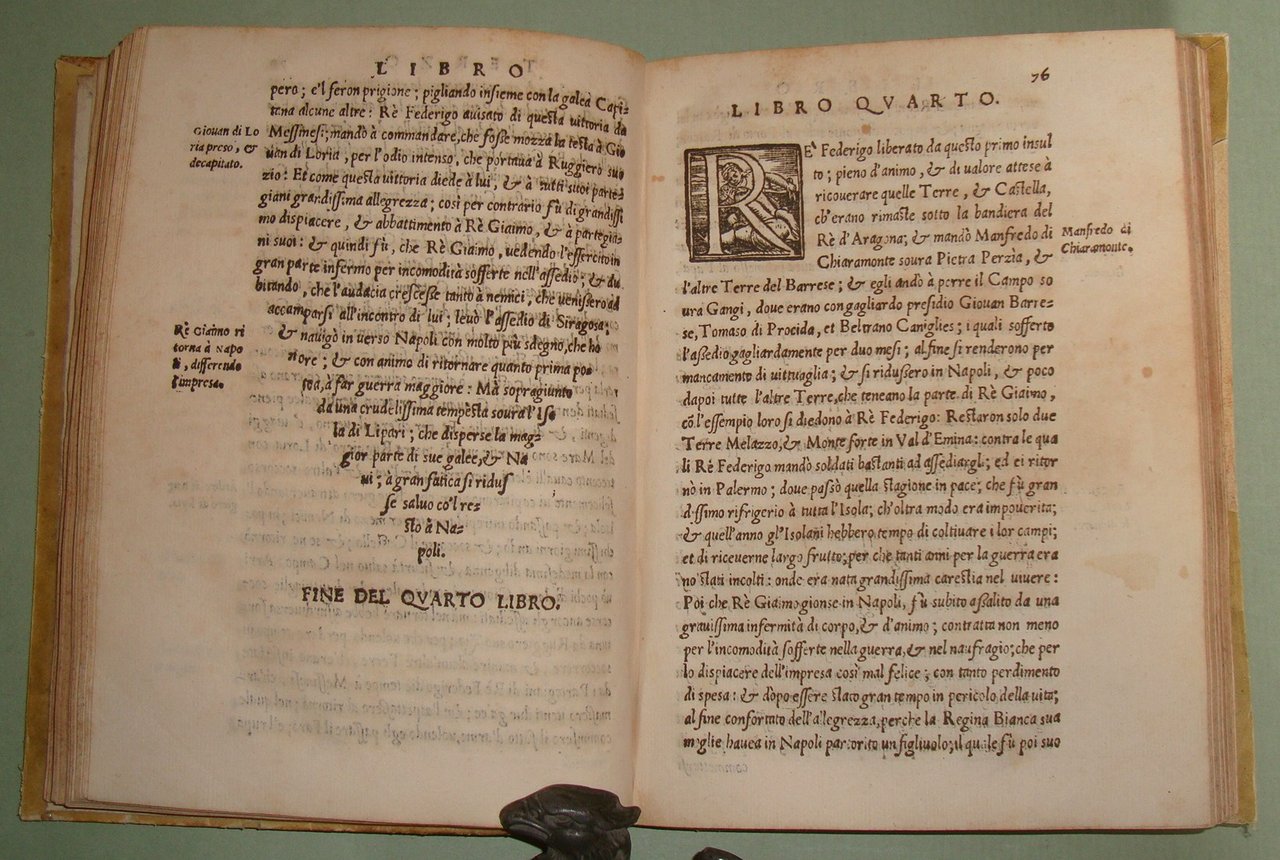 LIBRO
pero; e'l feron prigione; pigliando insieme con la galea Capi-
tana alcune altre: Rè Federigo auisato di questa uittoria da
Messinesi; mandò à commandare, che fosse mozza la testa à Gio
uan di Loria, per l'odio intenso, che portaua à Ruggiero suo
zio: Et come questa uittoria diede à lui, & à tutti suoi parte-
giani grandissima allegrezza; così per contrario fù di grandissi
mo dispiacere, & abbattimento à Rè Giaimo, & à partegia-
ni suoi: & quindi fù, che Rè Giaimo, uedendo l'essercito in
gran parte infermo per incomodità sofferte nell'assedio; & du
bitando, che l'audacia crescesse tanto à nemici, che uenissero ad
accamparsi all'incontro di lui; leuò l'assedio di Siragosa;
& nauigò in uerso Napoli con molto più sdegno, che ho
nore; & con animo di ritornare quanto prima po
tea, à far guerra maggiore: Mà sopragiunto
da una crudelissima tempesta soura l'Iso
la di Lipari; che disperse la mag-
gior parte di sue galee, & Na
ui; à gran fatica si ridus
se saluo co'l re-
sto à Na-
poli.
FINE DEL QVARTO LIBRO.
Giouan di Lo
ria preso, &
decapitato.
Rè Giaimo ri
torna à Napo
li, differendo
l'impresa.
76
LIBRO QVARTO.
RE' Federigo liberato da questo primo insul
to; pieno d'animo, & di valore attese à
ricouerare quelle Terre, & Castella,
ch'erano rimaste sotto la bandiera del
Rè d'Aragona; & mandò Manfredo di
Chiaramonte soura Pietra Perzia, &
l'altre Terre del Barrese; & egli andò à porre il Campo so
ura Gangi, doue erano con gagliardo presidio Giouan Barre-
se, Tomaso di Procida, et Beltrano Caniglies; i quali sofferto
l'assedio gagliardamente per duo mesi; al fine si renderono per
mancamento di uittuaglia; & si ridussero in Napoli, & poco
dapoi tutte l'altre Terre, che teneano la parte di Rè Giaimo,
cō l'essempio loro si diedono à Rè Federigo: Restaron solo due
Terre Melazzo, & Monteforte in Val d'Emina: contra le qua
li Rè Federigo mandò soldati bastanti ad assediargli; ed ei ritor
nò in Palermo; doue passò quella stagione in pace; che fù gran
dissimo rifrigerio à tutta l'Isola; ch'oltra modo era impouerita;
& quell'anno gl'Isolani hebbero tempo di coltiuare i lor campi;
et di riceuerne largo frutto; per che tanti anni per la guerra era
no stati incolti: onde era nata grandissima carestia nel uiuere:
Poi che Rè Giaimo gionse in Napoli, fù subito assalito da una
grauissima infermità di corpo, & d'animo; contratta non meno
per l'incomodità sofferte nella guerra, & nel naufragio; che per
lo dispiacere dell'impresa così mal felice; con tanto perdimento
di spesa: & dopo essere stato gran tempo in pericolo della uita;
al fine confortato dell'allegrezza, perche la Regina Bianca sua
moglie hauea in Napoli partorito un figliuolo; il quale fù poi suo
Manfredo di
Chiaramonte.